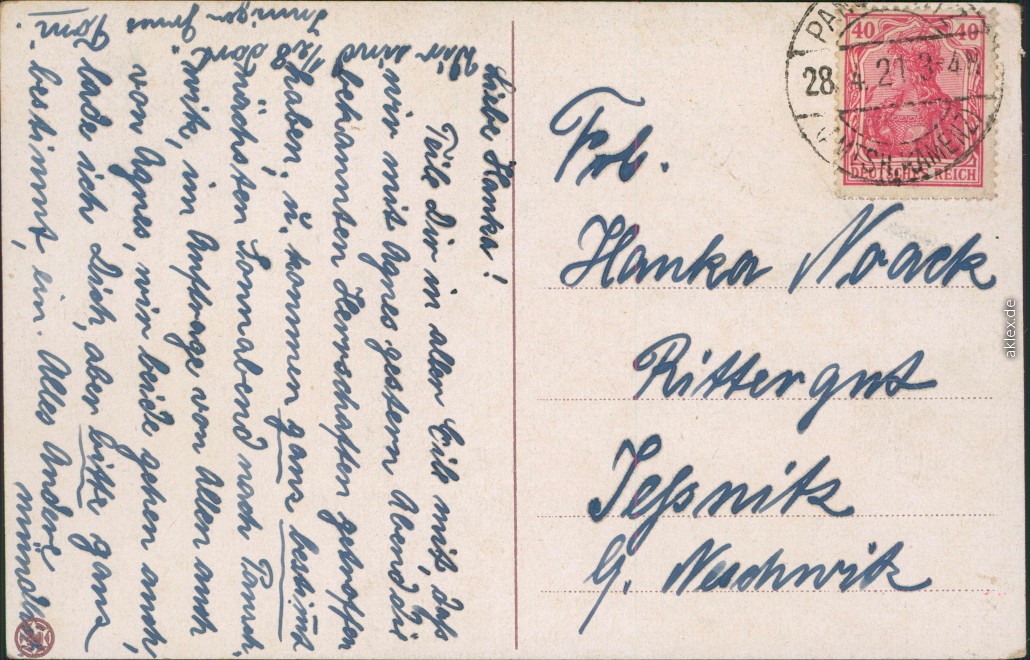 Liebe Hanka!
Teile Dir in aller Eile mit, daß
wir mit Agnes gestern Abend die
bekannten Herrschaften getroffen
haben, u. kommen ganz bestimt
nächsten Sonnabend nach Pansch-
wik, im Auftrage von Allen auch
von Agnes, wir beide gehen auch,
lade ich Dich, aber bitte ganz
bestimmt, ein. Alles Andere
mündlich.
Wir sind
1/2 8 dort.
Innigen Gruss
Toni.
Frl.
Hanka Noack
Rittergut
Jeßnitz
b. Neschwitz
40 40
DEUTSCHES REICH
28. 4. 21. 3-4N.
KAMENZ
aklex.de